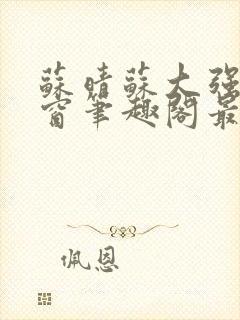 蘇晴蘇大强
窗筆趣閣最
佩恩